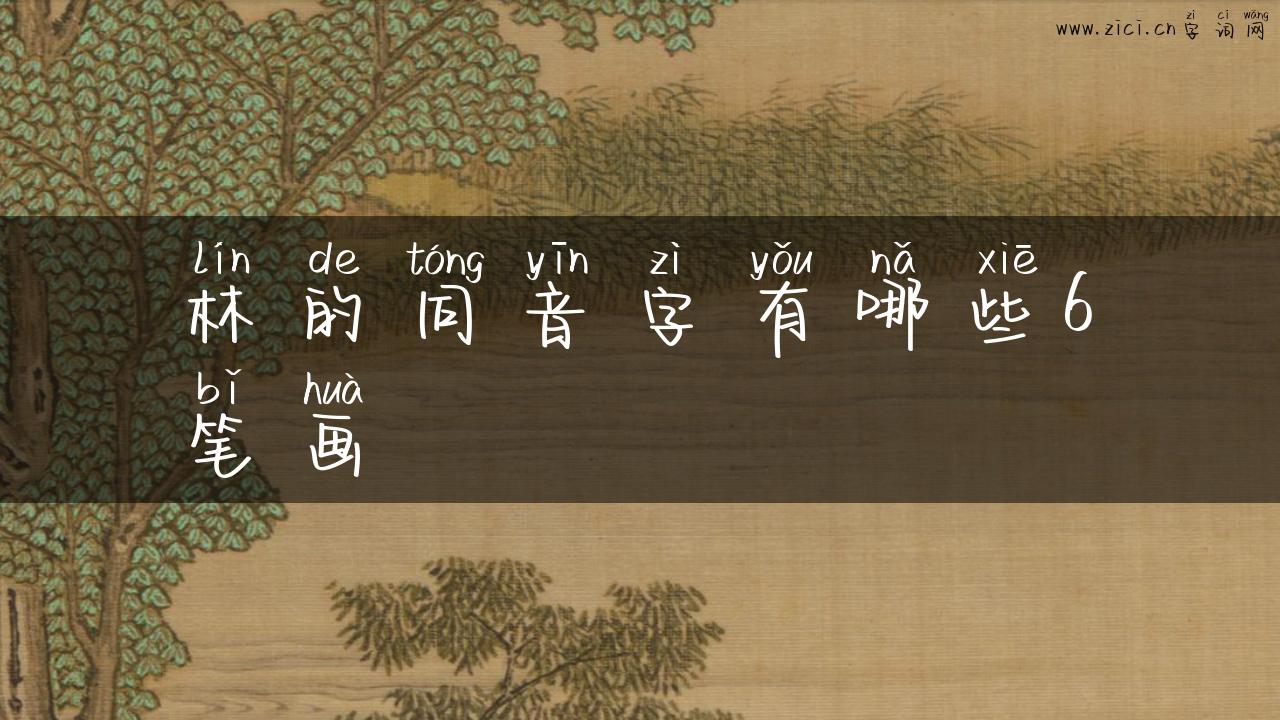 zì cí wǎng
www.zici.cn字词网
lín de tóng yīn zì yǒu nǎ xiē
林的同音字有哪些6
bǐ huà
笔画